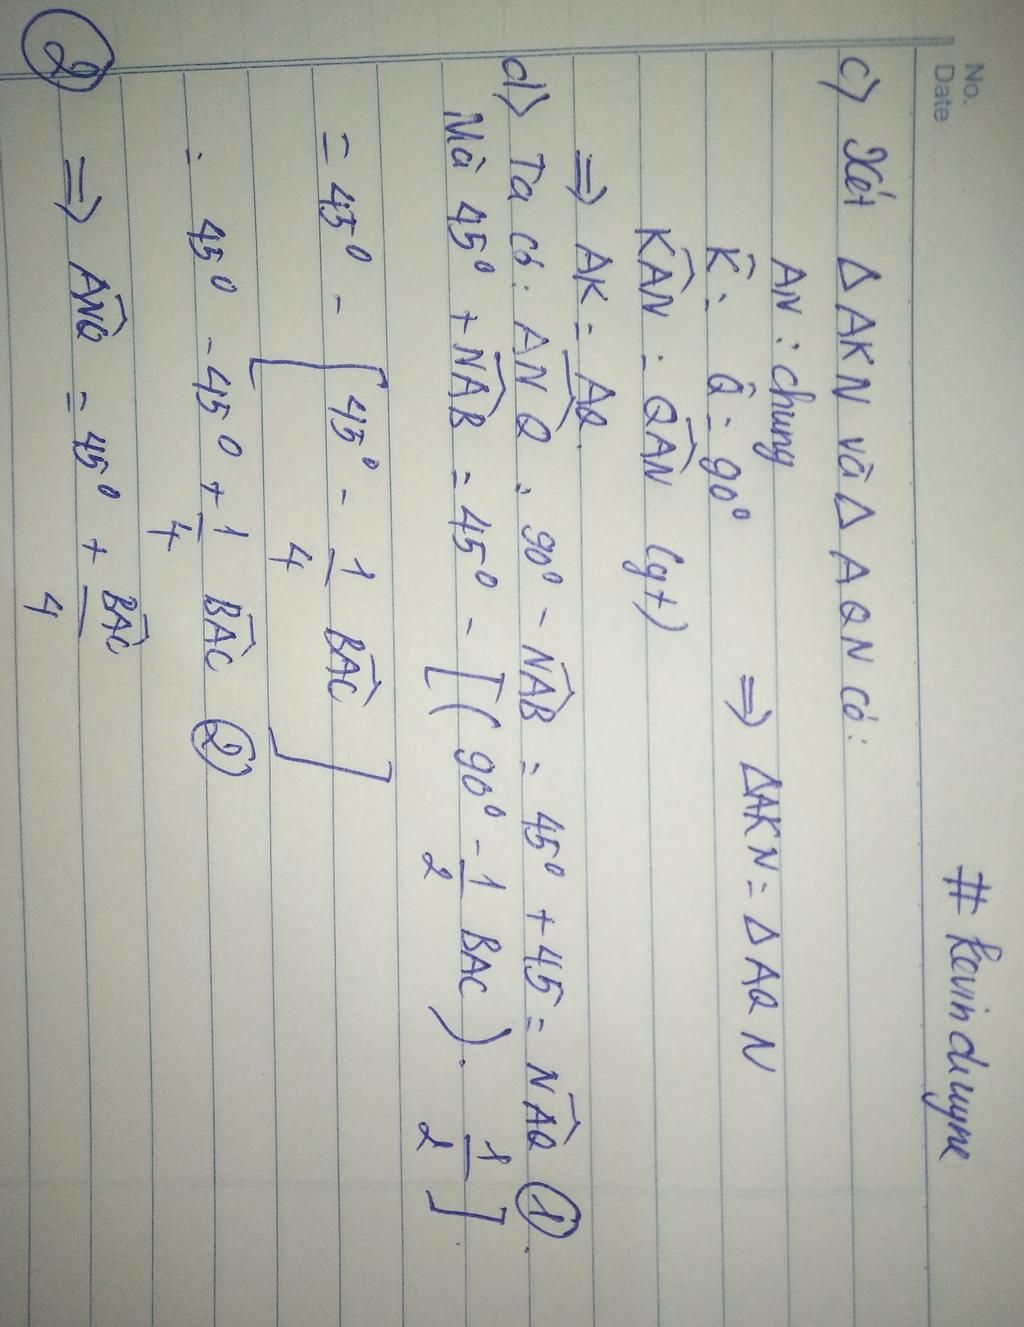 No.
Date
# Kevin dwyne
c) Xét Δ AKN và Δ AQN có:
AN : chung
K̂ = Q̂ = 90° ⇒ ΔAKN = Δ AQN
K͡AN = Q͡AN (gt)
⇒ AK = AQ.
d) Ta có: A͡NQ = 90° - N͡AB = 45° + 45 = N͡AQ ①.
Mà 45° + N͡AB = 45° - [(90° - 1/2 BAC). 1/2]
= 45° - [45° - 1/4 B͡AC]
= 45° - 45° + 1/4 B͡AC ②
② ⇒ A͡NQ = 45° + B͡AC/4